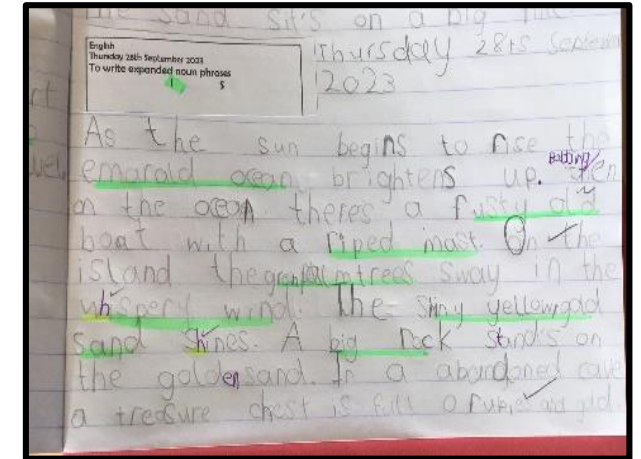 the sand sit's on a big
English
Thursday 28th September 2023
To write expanded noun phrases
I S
Thursday 28ts September
2023
As the sun begins to rise the
emarald ocean brightens up. then
on the ocean theres a rusty old
boat with a riped mast. On the
island the green palm trees sway in the
whispery wind. The shiny yellow gold
sand shines. A big rock stands on
the golden sand. In a abandoned cave
a treasure chest is full o rubies and gold.